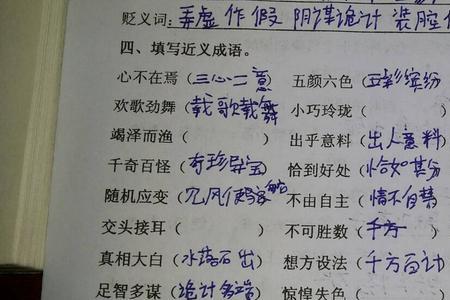 贬义词:弄虚作假 阴谋诡计 装腔作
四、填写近义成语。
心不在焉(三心二意) 五颜六色(五彩缤纷
欢歌劲舞(载歌载舞 小巧玲珑(
竭泽而渔( ) 出乎意料(出人意料)
千奇百怪(奇珍异宝) 恰到好处(恰如其分
随机应变( 不由自主(情不自禁
交头接耳( ) 不可胜数(千方
真相大白(水落石出) 想方设法(千方百计
足智多谋(诡计多端) 惊惶失色(